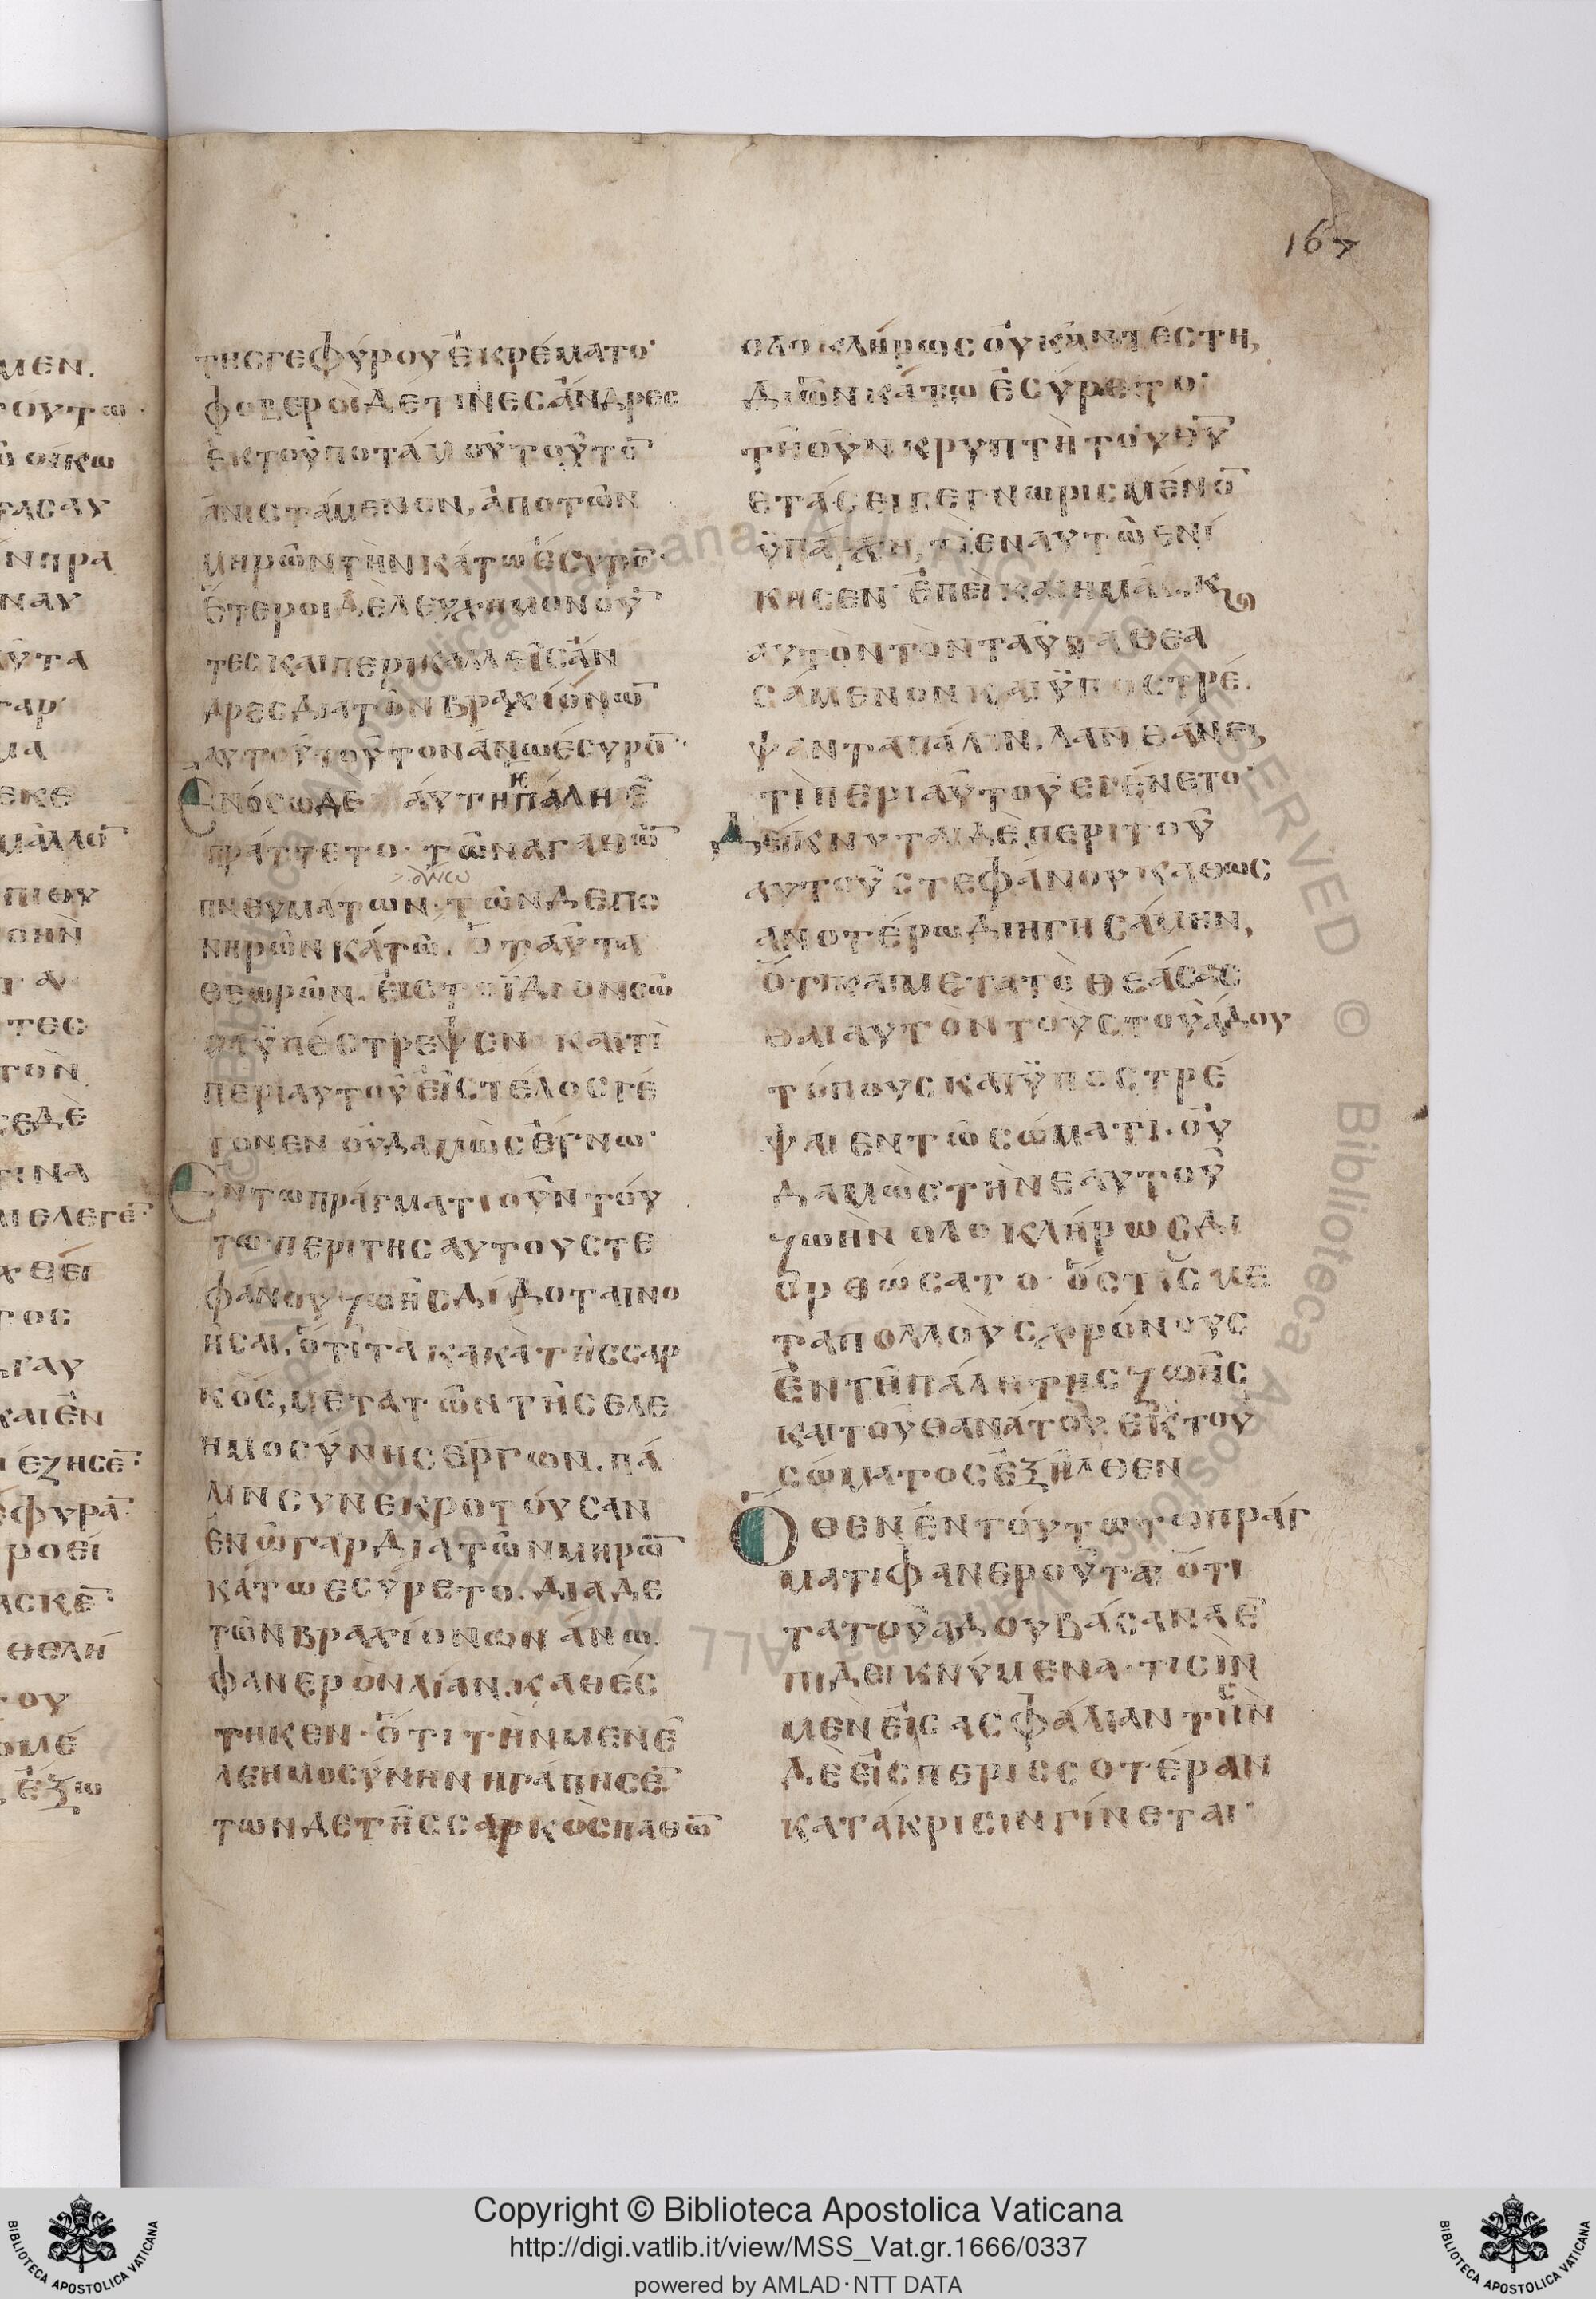 167
ΤΗϹΓΕΦΎΡΟΥ ἘΚΡΈΜΑΤΟ·
ΦΟΒΕΡΟΙΔΈΤΙΝΕϹἌΝΔΡΕϹ
ἘΚΤΟΥ͂ΠΟΤΑΜΟΥ͂ΤΟΥ͂ΤΟ̅
ἈΝΙϹΤΆΜΕΝΟΝ, ἈΠΟΤΩ͂Ν
ΜΗΡΩ͂ΝΤῊΝΚΆΤΩἘϹΥΡΟ̅·
ἝΤΕΡΟΙΔΕΛΕΥΧΗΜΟΝΟΥ̅
ΤΕϹΚΑΙΠΕΡΙΚΑΛΛΕΙ͂ϹἌΝ
ΔΡΕϹΔΙΑΤΩ͂ΝΒΡΑΧΙΌΝΩ̅
ΑΥΤΟΥ͂ΤΟΥ͂ΤΟΝἌΝΩἘϹΥΡΟ̅·
ἘΝΌϹΩΔΕ ΑΥΤΗΗΠΆΛΗΕ̅
ΠΡΆΤΤΕΤΟ· ΤΩ͂ΝΑΓΑΘΩ̅
ἄνω
ΠΝΕΥΜΆΤΩΝ· ΤΩ͂ΝΔΕΠΟ
ΝΗΡΩ͂ΝΚΆΤΩ. Ὁ ΤΑΥ͂ΤΑ
ΘΕΩΡΩ͂Ν. ἘΙϹΤΟΪ́ΔΙΟΝϹΩ͂
ΜΑΫΠΈϹΤΡΕΨΕΝ ΚΑΙΤῚ
ΠΕΡΙΑΥΤΟΥ͂ΕἸϹΤΈΛΟϹΓΈ
ΓΟΝΕΝΟΥ̓ΔΑΜΩ͂ϹἜΓΝΩ·
ἘΝΤΩΠΡΆΓΜΑΤΙΟΥ͂ΝΤΟΎ
ΤΩ·ΠΕΡΙΤΗϹΑΥΤΟΥϹΤΕ
ΦΆΝΟΥΖΩΗ͂ϹΔΊΔΟΤΑΙΝΟ
Η͂ϹΑΙ, ὍΤΙΤᾺΚΑΚᾺΤΗ͂ϹϹΑΡ
ΚῸϹ, ΜΕΤΑΤΩ͂ΝΤΗ͂ϹΕΛΕ
ΗΜΟϹΎΝΗϹΕΡΓΩΝ. ΠΆ
ΛΙΝϹΥΝΕΚΡΟΤΟΎϹΑΝ
ἘΝΩ͂ΓΑΡΔΙΑΤΩ͂ΝΜΗΡΩ̅
ΚΆΤΩΕϹΎΡΕΤΟ. ΔΙΑΔΕ
ΤΩ͂ΝΒΡΑΧΙΟΝΩΝἌΝΩ.
ΦΑΝΕΡῸΝΛΊΑΝ.ΚΑΘΈϹ
ΤΗΚΕΝ· ὍΤΙΤῊΝΜΕΝΕ̅
ΛΕΗΜΟϹΎΝΗΝΗΓΆΠΗϹΕ̅
ΤΩΝΔΕΤΗ͂ϹϹΑΡΚῸϹΠΑΘΩ̅
ΟΛΟΚΛΉΡΩϹΟΥ̓ΚἈΝΤΈϹΤΗ,
ΔΙΩ͂ΝΚΆΤΩἘϹΎΡΕΤΟ·
ΤΗ͂ΟΥ͂ΝΚΡΥΠΤΗ͂ΤΟΥΘΥ̅
ΕΤΆϹΕΙΓΕΓΝΩΡΙϹΜΈΝΟ̅
ΫΠΆΡΧΗ, ΤῚΕΝΑΥΤΩ͂ΕΝΊ
ΚΗϹΕΝ· ἘΠΕῚΚΑΙΗΜΑ͂Ϲ, Κ
ΑΥΤῸΝΤῸΝΤΑΥ͂ΤΑΘΕΑ
ϹΆΜΕΝΟΝΚΑΙΫΠΟϹΤΡΈ.
ΨΑΝΤΑΠΆΛΙΝ. ΛΑΝΘΆΝΕΙ
ΤῚΠΕΡΙΑΥΤΟΥ͂ΕΓΈΝΕΤΟ·
ΔΕΊΚΝΥΤΑΙΔῈΠΕΡΙΤΟΥ͂
ΑΥΤΟΥ͂ϹΤΕΦΆΝΟΥΚΑΘΩϹ
ΑΝΟΤΈΡΩΔΙΗΓΗϹΆΜΗΝ,
ὍΤΙΚΑΙΜΕΤΑΤῸΘΕΆϹΑϹ
ΘΑΙΑΥΤῸΝΤΟῪϹΤΟΥ͂ᾍΔΟΥ
ΤΌΠΟΥϹΚΑΙΫΠΟϹΤΡΈ
ΨΑΙΕΝΤΩ͂ϹΩΜΑΤΙ. ΟΥ̓
ΔΑΜΩ͂ϹΤῊΝΕΑΥΤΟΥ͂
ΖΩῊΝΟΛΟΚΛΉΡΩϹΔΙ
ΟΡΘΏϹΑΤΟ· ὍϹΤΙϹΜΕ
ΤΑΠΟΛΛΟῪϹΧΡΌΝΟΥϹ
ἘΝΤΗ͂ΠΆΛΗΤΗϹΖΩΗ͂Ϲ
ΚΑΙΤΟΥ͂ΘΑΝΆΤΟΥ. ΕἸΚΤΟΥ͂
ϹΏΜΑΤΟϹἘΞΗ͂ΛΘΕΝ
ὍΘΕΝἘΝΤΟΎΤΩΤΩΠΡΆΓ
ΜΑΤΙΦΑΝΕΡΟΥ͂ΤΑΙὍΤΙ
ΤΑΤΟΥ͂ᾍΔΟΥΒΆϹΑΝΑΕ̅
ΠΙΔΕΙΚΝΎΜΕΝΑ· ΤΙϹῚΝ
ΜῈΝΕἸϹΑϹΦΆΛΙΑΝΤΙϹῚΝ
ΔῈΕἸϹΠΕΡΙϹϹΟΤΈΡΑΝ
ΚΑΤΆΚΡΙϹΙΝΓΊΝΕΤΑΙ·
Copyright © Biblioteca Apostolica Vaticana
http://digi.vatlib.it/view/MSS_Vat.gr.1666/0337
powered by AMLAD·NTT DATA
BIBLIOTECA APOSTOLICA VATICANA
BIBLIOTECA APOSTOLICA VATICANA